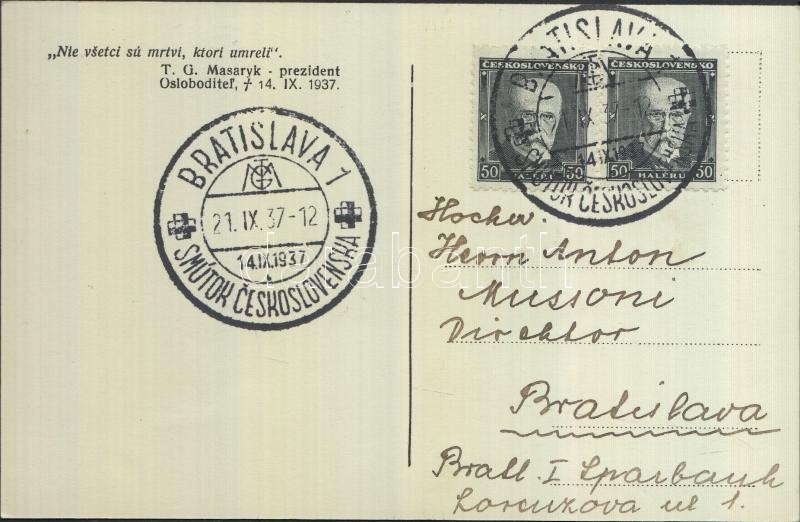 „Nie všetci sú mrtvi, ktori umreli“.
T. G. Masaryk - prezident
Osloboditeľ, † 14. IX. 1937.
BRATISLAVA 1
TGM
21. IX. 37-12
14.IX.1937
SMÚTOK ČESKOSLOVENSKA
ČESKOSLOVENSKO
50 HALÉŘŮ 50
ČESKOSLOVENSKO
50 HALÉŘŮ 50
BRATISLAVA
IX. 37-12
14.IX.1937
SMÚTOK ČESKOSLOVENSKA
Hochw.
Herrn Anton
Mussoni
Direktor
Bratislava
Bratl. I Sparbank
ul 1.
darabanth